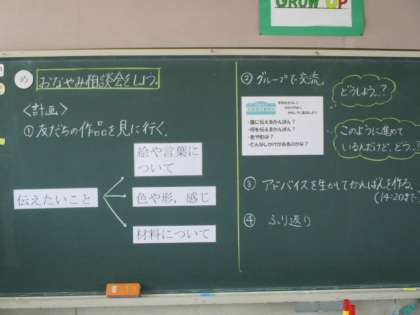 GROW UP
め おなやみ相談会をしよう。
<計画>
①友だちの作品を見に行く。
伝えたいこと
絵や言葉に
ついて
色や形，感じ
材料について
② グループで交流。
・誰に伝えるかんばん？
・何を伝えるかんばん？
どうしよう..?
このように進めて
いるんだけど、どう..?
③ アドバイスを生かしてかんばんを作る。
(14:20まで)
④ ふり返り